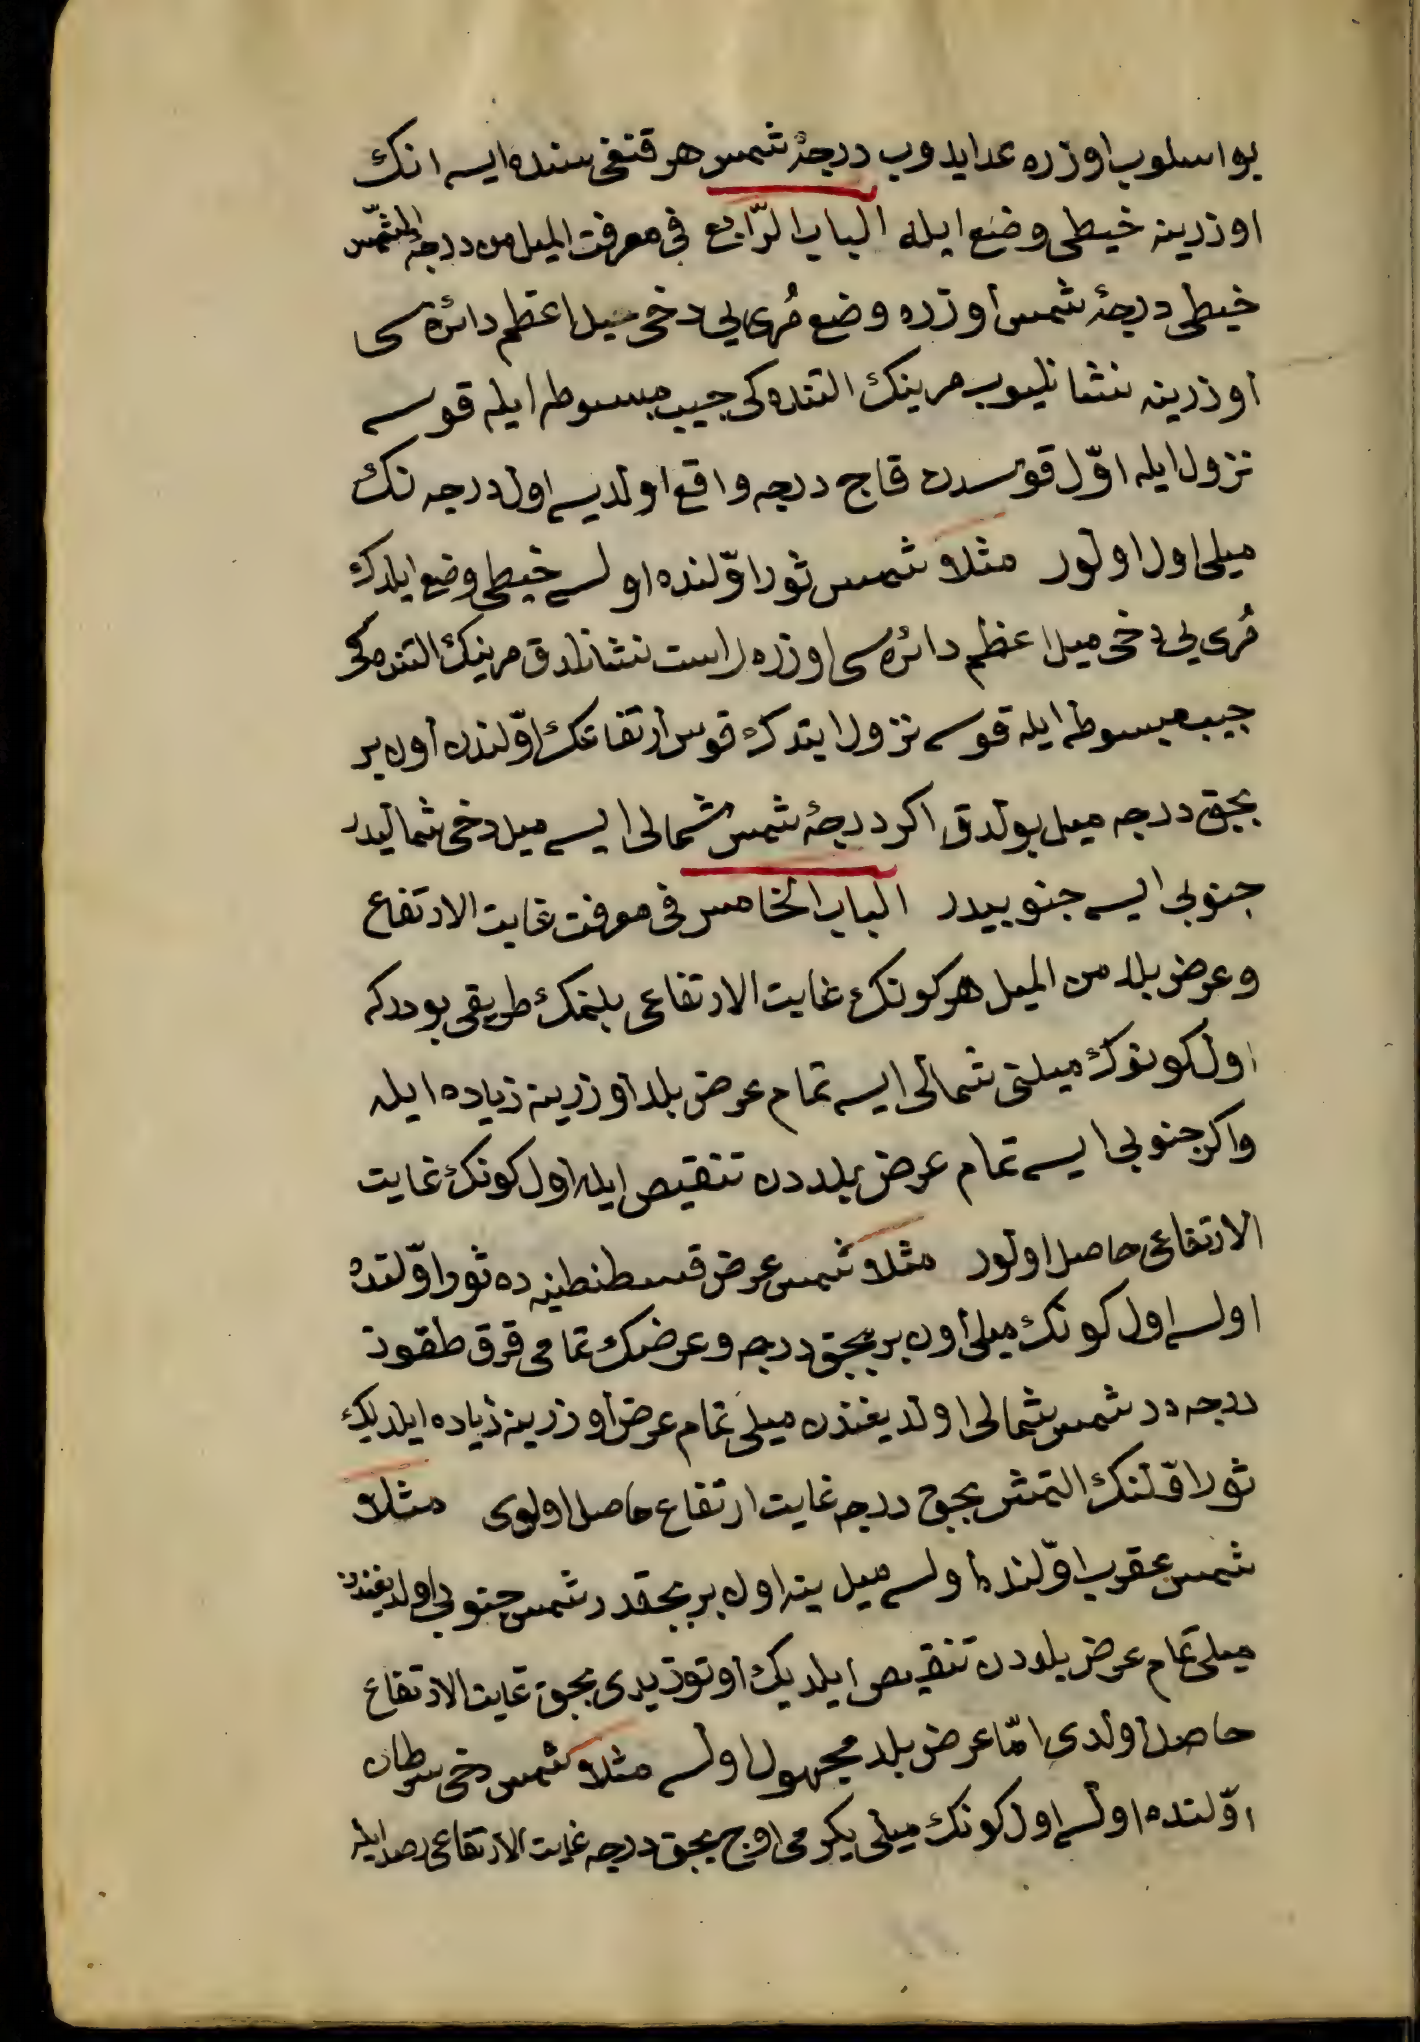 بو اسلوب اوزره عد ايدوب درجهٔ شمس هر قنغى سنده ايسه انك
اوزرينه خيطى وضع ايله الباب الرّابع فى معرفت الميل من درجهٔ الشّمس
خيطى درجهٔ شمس اوزره وضع مُرى يى دخى ميل اعظم دائره سى
اوزرينه نشانليوب مرينك التنده كى جيب مبسوطه ايله قوسه
نزول ايله اوّل قوسدن قاج درجه واقع اولديسه اول درجه نك
ميلى اول اولور مثلا شمس ثور اوّلنده اولسه خيطى وضع ايلدك
مُرى يى دخى ميل اعظم دائره سى اوزره راست نشانلدق مرينك التنده كى
جيب مبسوطه ايله قوسه نزول ايتدك قوس ارتفاعك اوّلندن اون بر
بجق درجه ميل بولدق اكر درجهٔ شمس شمالى ايسه ميل دخى شماليدر
جنوبى ايسه جنوبيدر الباب الخامس فى معرفت غايت الارتفاع
وعرض بلد من الميل هر كونك غايت الارتفاعى بلنمك طريقى بودركه
اول كونوك ميلنى شمالى ايسه تمام عرض بلد اوزرينه زياده ايله
واكر جنوبى ايسه تمام عرض بلددن تنقيص ايله اول كونك غايت
الارتفاعى حاصل اولور مثلا شمس عرض قسطنطينيه ده ثور اوّلنده
اولسه اول كونك ميلى اون بر بجق درجه وعرضك تمامى قرق طقوز
درجه در شمس شمالى اولديغندن ميلى تمام عرض اوزرينه زياده ايلديك
ثور اوّلنك التمش بجق درجه غايت ارتفاع حاصل اولدى مثلا
شمس عقرب اوّلنده اولسه ميل ينه اون بر بجقدر شمس جنوبى اولديغندن
ميلى تمام عرض بلددن تنقيص ايلديك اوتوز يدى بجق غايت الارتفاع
حاصل اولدى امّا عرض بلد مجهول اولسه مثلا شمس دخى سرطان
اوّلنده اولسه اول كونك ميلى يكرمى اوچ بجق درجه غايت الارتفاعى رصد ايله